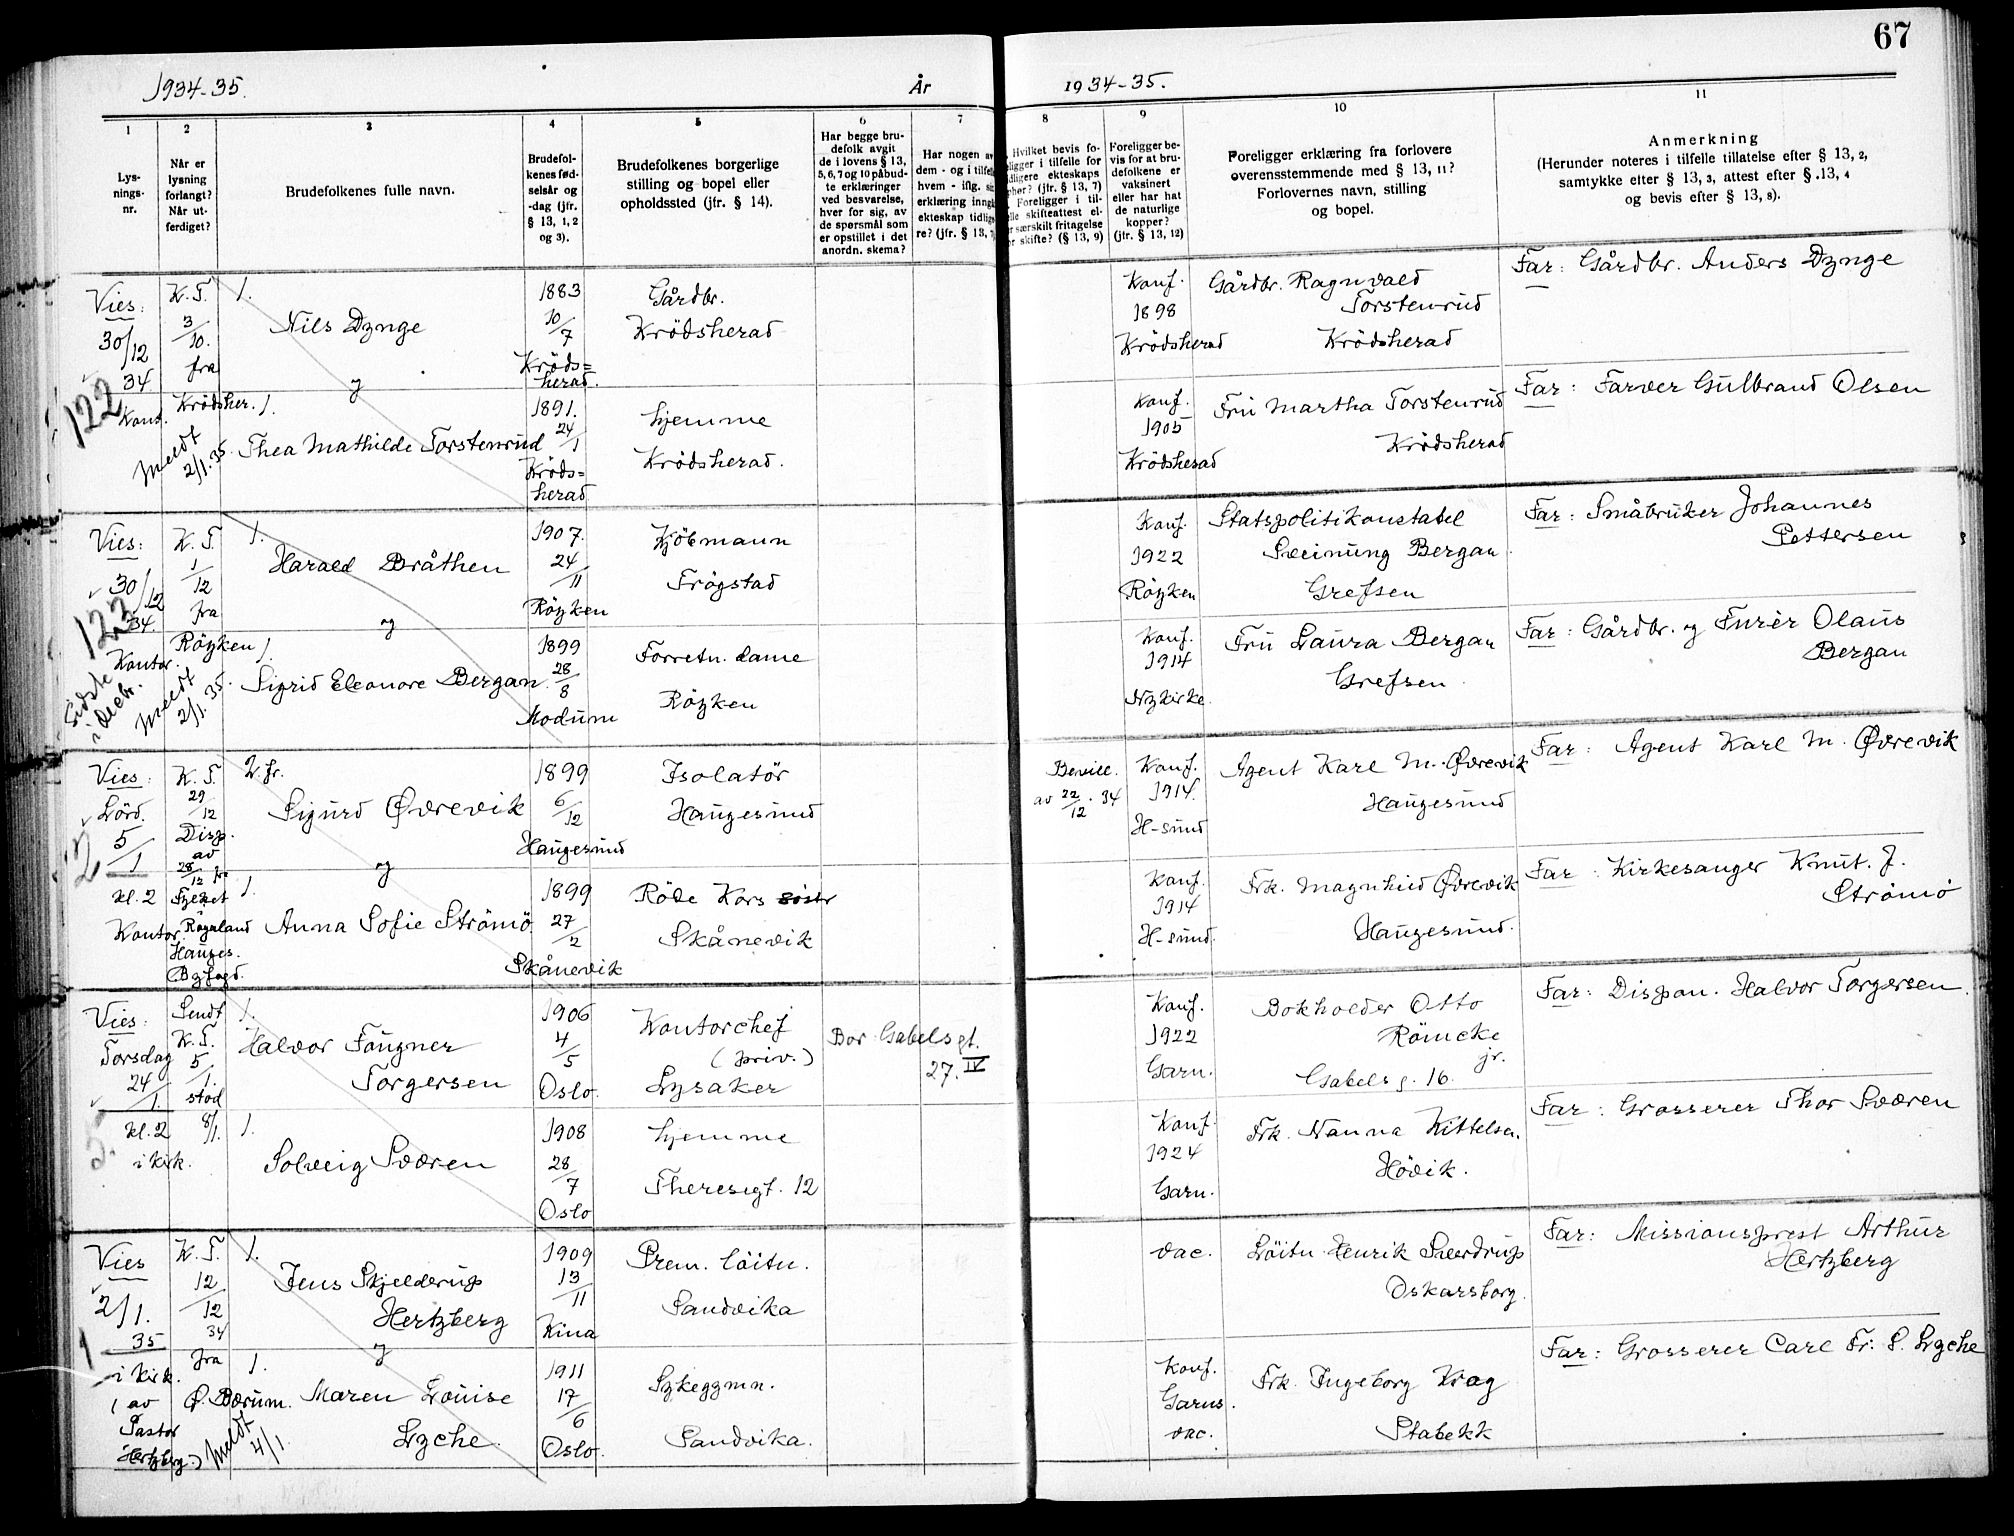 67
1934-35.
År
1934-35.
1
2
3
4
5
6
7
8
9
10
11
Lys-
nings-
nr.
Når er
lysning
forlangt?
Når ut-
ferdiget?
Brudefolkenes fulle navn.
Brudefol-
kenes fød-
selsår og
-dag (jfr.
§ 13, 1, 2
og 3).
Brudefolkenes borgerlige
stilling og bopel eller
opholdssted (jfr. § 14).
Har begge bru-
defolk avgit
de i lovens § 13,
5, 6, 7 og 10 påbud-
te erklæringer
ved besvarelse,
hver for sig, av
de spørsmål som
er opstillet i det
anordn. skema?
Har nogen av
dem - og i tilfel
hvem - iflg. si
erklæring inng
ekteskap tidlig
re? (jfr. § 13,
Hvilket bevis fo-
ligger i tilfelle for
dligere ekteskaps
ehør? (jfr. § 13, 7)
Foreligger i til-
lle skifteattest el-
r særskilt fritagelse
or skifte? (§ 13, 9)
Foreligger be-
vis for at bru-
defolkene er
vaksinert
eller har hat
de naturlige
kopper?
(jfr. § 13, 12)
Foreligger erklæring fra forlovere
overensstemmende med § 13, 11?
Forlovernes navn, stilling
og bopel.
Anmerkning
(Herunder noteres i tilfelle tillatelse efter § 13, 2,
samtykke efter § 13, 3, attest efter § 13, 4
og bevis efter § 13, 8).
Vies:
30/12
34
122
Kont.
K. T.
3/10.
fra
Krødsher.
meldt
2/1.35.
1.
Nils Dynge
og
1883
10/7
Kröds=
herad.
Gårdbr.
Krödsherad
Konf.
1898
Krödsherad
Gårdbr. Ragnvald
Torstenrud
Krödsherad
Far: Gårdbr. Anders Dynge
1.
Thea Mathilde Torstenrud
1891.
24/1
Kröds=
herad
hjemme
Krödsherad.
Konf.
1905
Krödsherad
Fru Martha Torstenrud
Krödsherad
Far: Farver Gulbrand Olsen
Vies:
30/12
34.
123
Kontor.
Sidste
i decbr.
K. T.
1/12
fra
Röyken
meldt
2/1.35.
1.
Harald Bråthen
og
1907.
24/11
Röyken
Kjöbmann
Frögstad
Konf.
1922
Röyken
Statspolitikonstabel
Sveinung Bergan
Grefsen
Far: Småbruker Johannes
Pettersen
1.
Sigrid Eleonore Bergan.
1899
28/8
Modum
Forretn. dame
Röyken
Konf.
1914
Nykirke.
Fru Laura Bergan
Grefsen
Far: Gårdbr. og Furér Olaus
Bergan
Vies:
Lörd.
5/1
2
kl. 2
Kontor
K. T.
29/12
Disp.
av
28/12 fra
Fylket
Rogaland
Hauges.
Byfogd.
2. fr.
Sigurd Øvrevik
og
1899
6/12
Haugesund
Isolatör
Haugesund
Bevill.
av 22/12. 34
Konf.
1914.
H-sund
Agent Karl M. Øvrevik
Haugesund
Far: Agent Karl M. Øvrevik
1.
Anna Sofie Strömö
1899
27/2
Skånevik
Röde Kors söstr
Skånevik
Konf.
1914
H-sund.
Frk. Magnhild Øvrevik
Haugesund.
Far: Kirkesanger Knut. J.
Strömö
Vies:
Torsdag
24/1.
kl. 2
i kirk.
Sendt
K. T.
5/1.
stod
8/1.
1.
Halvor Faugner
Torgersen
1906
4/5
Oslo.
Kontorchef
(priv.)
Lysaker
Bor Gabelsgt.
27. IV
Konf.
1922
Garn.
Bokholder Otto
Römcke
jr.
Gabelsg. 16.
Far: Dispon. Halvor Torgersen.
1.
Solveig Sværen
1908
28/7
Oslo
hjemme
Theresegt. 12
Konf.
1924
Garn.
Frk. Nanna Kittelsen.
Hövik.
Far: Grosserer Thor Sværen
Vies
2/1.
35
1
i kirk.
(av
Pastor
Hertzberg.)
K. T.
12/12
34
fra
Ø. Bærum.
meldt
4/1.
1.
Jens Skjelderup
Hertzberg
og
1909
13/11
Kina
Prem. löitn.
Sandvika
vac.
Löitn Henrik Sverdrup
Oskarsborg.
Far: Missionsprest Arthur
Hertzberg
1.
Maren Louise
Lyche.
1911
17/6
Oslo.
Sykegymn.
Sandvika.
Konf.
Garns.
vac.
Frk. Ingeborg Krag
Stabekk
Far: Grosserer Carl Fr. S. Lyche